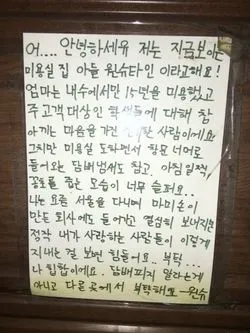 어.... 안녕하세유 저는 지금보이는
미용실 집 아들 원슈타인 이라고해요!
엄마는 내수에서만 15년을 미용했고
주고객 대상인 학생들에 대해 참
아끼는 마음을 가진 사람이에요
그치만 미용실 도와주면서 항문 너머로
들어오는 담배냄새도 참고, 아침일찍
꽁초를 줍는 모습이 너무 슬퍼요..
나는 요즘 서울을 다니며 마미손이
만든 회사에도 들어간 열심히 보내지만
정작 내가 사랑하는 사람들이 이렇게
지내는 걸 보면 힘들어요.. 부탁...
나 힙합이에요. 담배피지 말라는게
아니고 다른곳에서 부탁해요 - 원슈